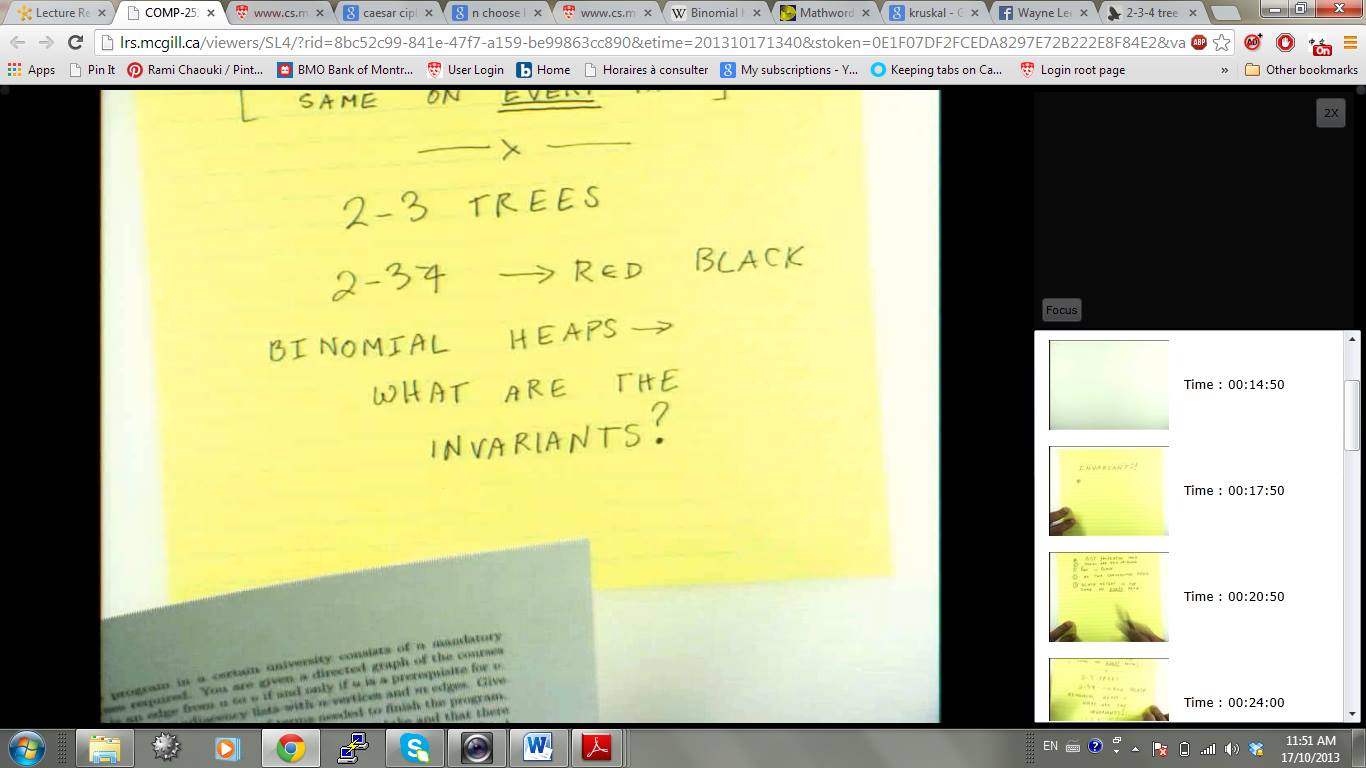 Lecture Re
COMP-25
www.cs.m
caesar cipl
n choose
www.cs.m
Binomial
Mathword
kruskal - G
Wayne Le
2-3-4 tree
lrs.mcgill.ca/viewers/SL4/?rid=8bc52c99-841e-47f7-a159-be99863cc390&etime=201310171340&stoken=0E1F07DF2FCEDA8297E72B222E8F84E2&va
ABP
On
Apps
Pin It
Rami Chaouki / Pint...
BMO Bank of Montr...
User Login
Home
Horaires à consulter
My subscriptions - Y...
Keeping tabs on Ca...
Login root page
»
Other bookmarks
SAME ON EVERY
X
2-3 TREES
2-34 → RED BLACK
BINOMIAL HEAPS →
WHAT ARE THE
INVARIANTS?
program in a certain university consists of n mandatory
es required. You are given a directed graph of the courses
is an edge from u to v if and only if u is a prerequisite for v.
adjacency lists with n vertices and m edges. Give
needed to finish the program.
take and that there
2X
Focus
Time : 00:14:50
INVARIANTS!
Time : 00:17:50
Time : 00:20:50
2-3 TREES
Time : 00:24:00
EN
11:51 AM
17/10/2013